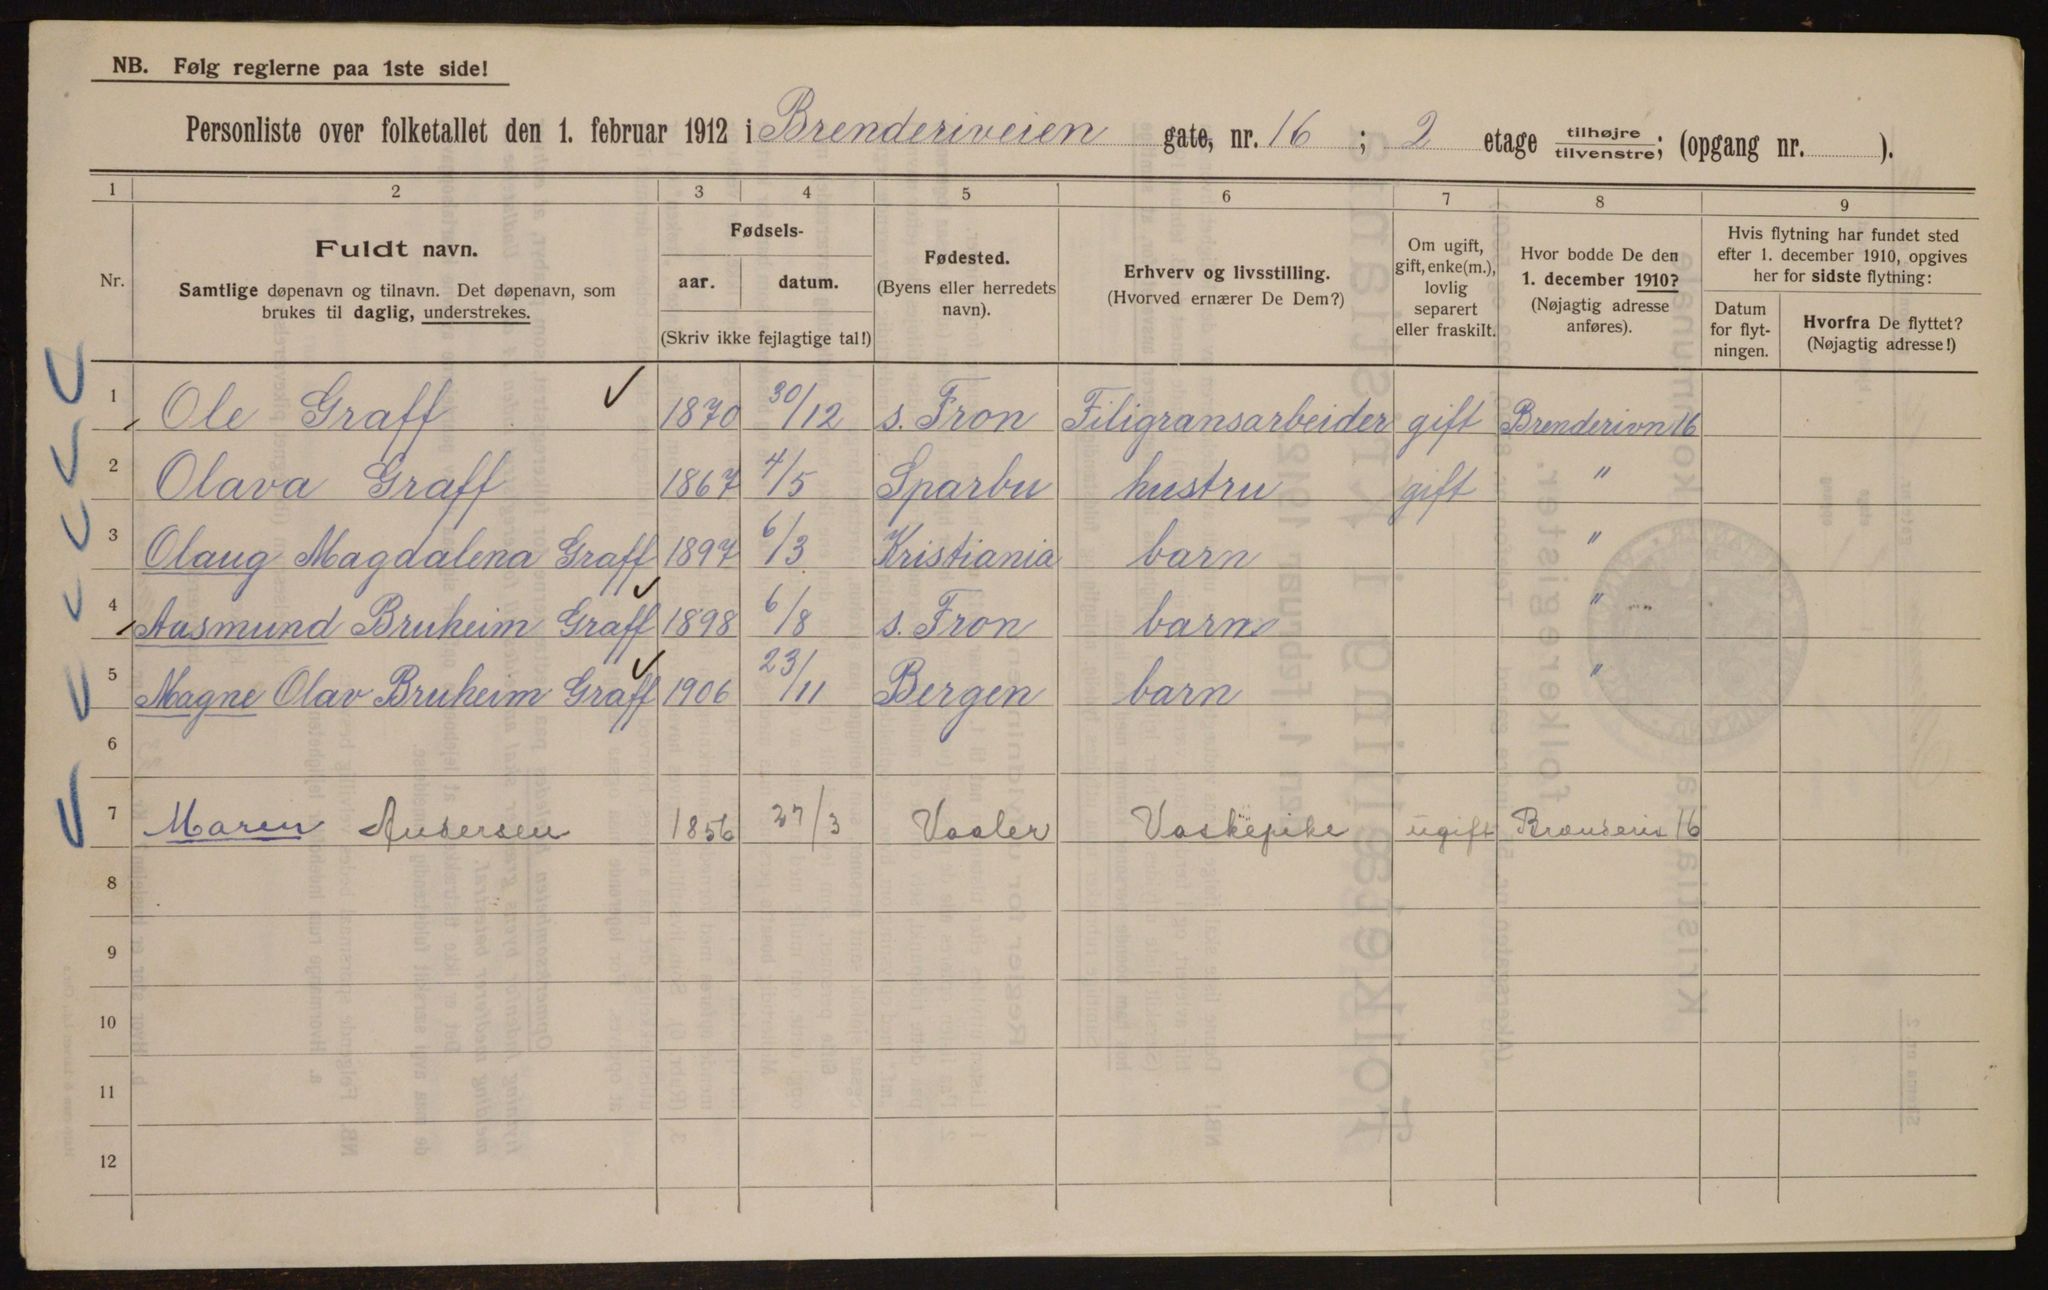 NB. Følg reglerne paa 1ste side!
Personliste over folketallet den 1. februar 1912 i Brenderiveien gate, nr. 16 ; 2 etage tilhøjre tilvenstre; (opgang nr. ).
1 2 3 4 5 6 7 8 9
Nr.
Fuldt navn.
Samtlige døpenavn og tilnavn. Det døpenavn, som
brukes til daglig, understrekes.
Fødsels-
aar. datum.
(Skriv ikke fejlagtige tal!)
Fødested.
(Byens eller herredets
navn).
Erhverv og livsstilling.
(Hvorved ernærer De Dem?)
Om ugift,
gift, enke(m.),
lovlig
separert
eller fraskilt.
Hvor bodde De den
1. december 1910?
(Nøjagtig adresse
anføres).
Hvis flytning har fundet sted
efter 1. december 1910, opgives
her for sidste flytning:
Datum
for flyt-
ningen.
Hvorfra De flyttet?
(Nøjagtig adresse!)
1 Ole Graff 1870 30/12 s. Fron Filigransarbeider gift Brenderivn 16
2 Olava Graff 1867 4/5 Sparbu hustru gift "
3 Olaug Magdalena Graff 1897 6/3 Kristiania barn "
4 Aasmund Bruheim Graff 1898 6/8 s. Fron barn "
5 Magne Olav Bruheim Graff 1906 23/11 Bergen barn "
6
7 Maren Andersen 1856 27/3 Vaaler Vaskepike ugift 16
8
9
10
11
12